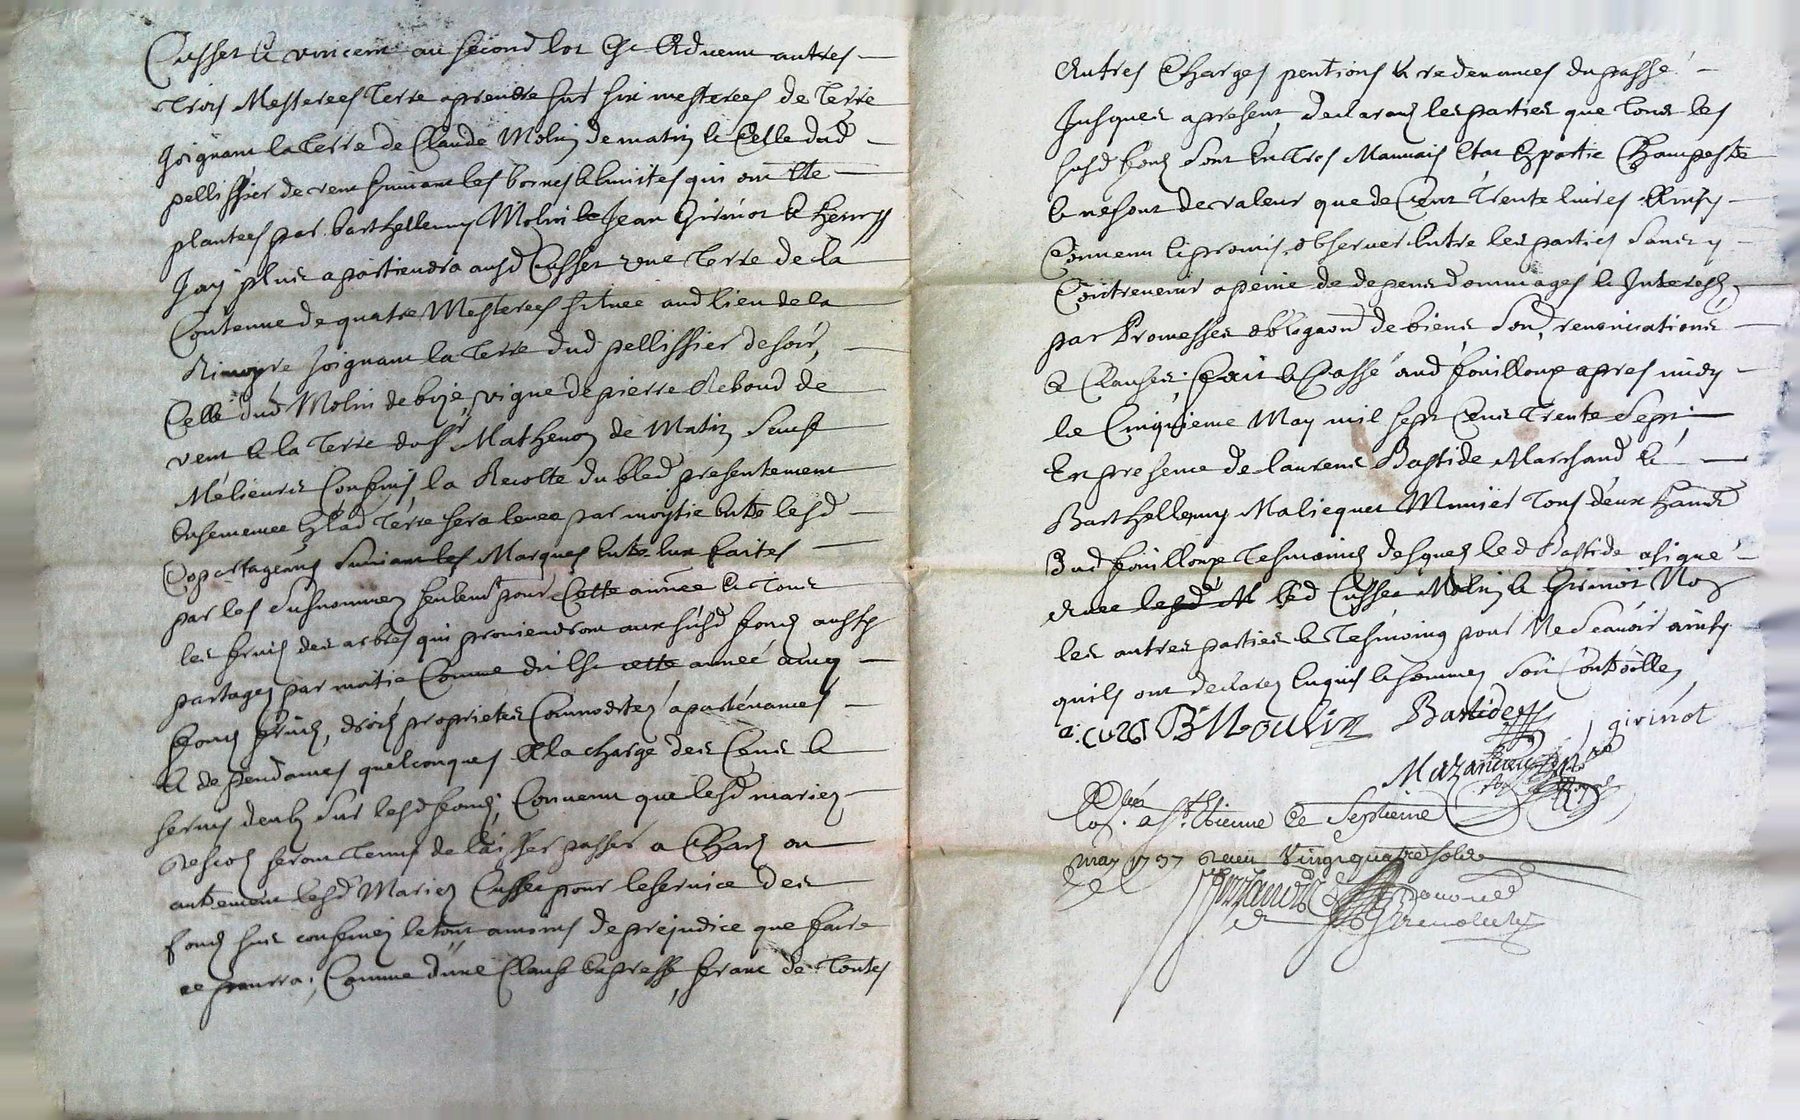 Cusset & vincent au second lot Est Advenu autres
Trois Mesterees Terre aprendre sur six mesterees de Terre
Joignant la Terre de Claude Molin de matin & Celle dud
pellissier de vent suivant les bornes & limites qui ont Ete
plantees par barthellemy Molin & Jean Girinot & henry
Jay plus apartiendra ausd Cusset une Terre de la
Contenue de quatre Mesterees situee aud lieu de la
joignant la Terre dud pellissier de soir,
Celle dud Molin de bize, vigne de pierre Reboud de
vent & la Terre du sr Mathenon de Matin Sauf
Mélieurs Confins, la Recolte du bled presentement
Ensemencé En lad Terre sera levee par moytié Entre lesd
Copartageans Suivant les Marques Entre Eux faites
par les Susnommez seulemt pour Cette année & Tous
les fruis des arbres qui proviendront aux susd fonds aussy
partagez par moitie Comme dit Est cette année avec
fonds fruits, droits proprietes Commoditez apartenances
& de pendances quelconques A la charge des Cens &
servis deubs Sur lesd fonds; Convenu que lesd mariez
seront Tenus de laisser passer a Chars ou
autrement lesd Mariez Cusset pour le service des
fonds sus confinez le tout amoins de prejudice que faire
se pourra; Comme d'une Clause Expresse, franc de Toutes
Autres Charges pentions & redevances du passé
Jusques apresent, declarans les parties que Tous les
susd fonds Sont En Tres Mauvais Etat En partie Champestre
& ne sont de valeur que de Cent Trente livres Ainsy
Convenu & promis observer Entre les parties Sans y
Contrevenir a peine de depens dommages & Interests,
par Promesses obligaons de biens Soud, renonciations
& Clauses; Fait & Passé aud fouilloux apres midy
le Cinquieme May mil sept Cens Trente Sept;
En presence de laurens Bastide Marchand &
Barthellemy Malicquet Munier Tous deux hants
Aud fouilloux Tesmoins desquels led Bastide a signé
Avec led Cusset Molin & Girinot Non
les autres parties & Tesmoing pour Ne Scavoir ainsy
quils ont declarez Enquis & sommez Soit Controlle,
a: cuset B Moulin Bastide girinot
Mazandieu
a St. Etienne le Septieme
may 1737 Receu Vingt quatre sols